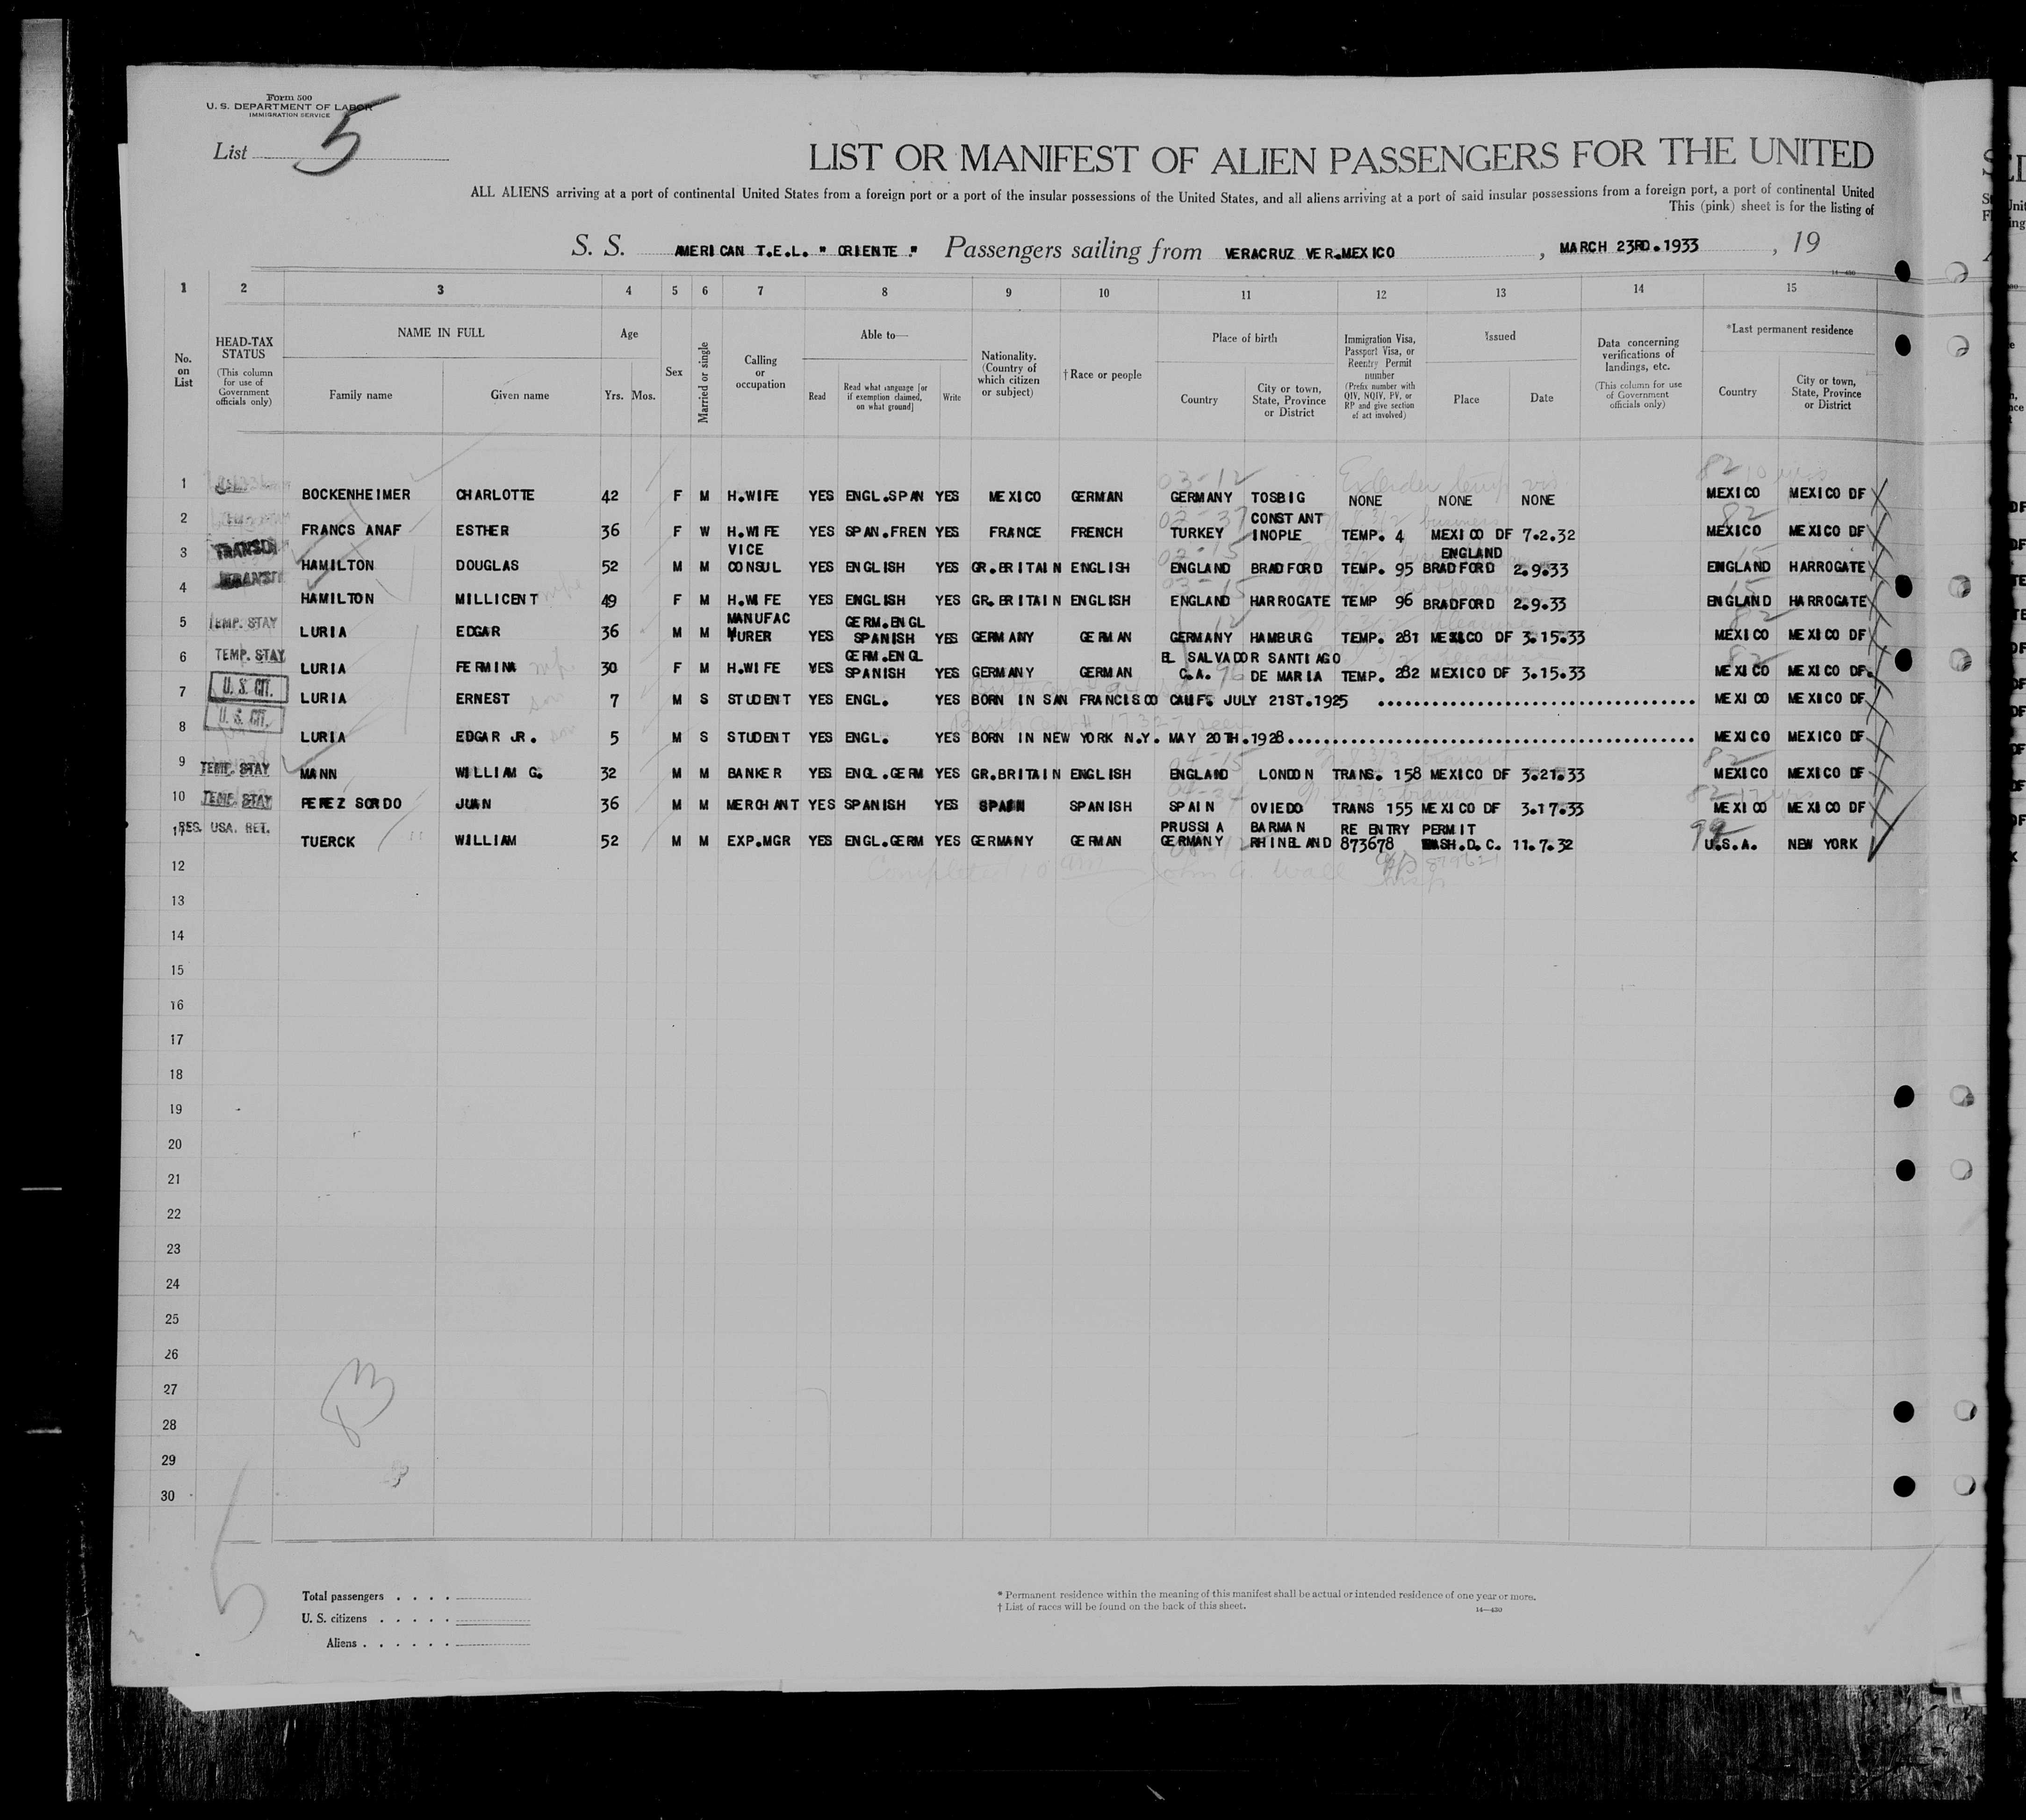 Form 500
U. S. DEPARTMENT OF LABOR
IMMIGRATION SERVICE
List 5
LIST OR MANIFEST OF ALIEN PASSENGERS FOR THE UNITED
ALL ALIENS arriving at a port of continental United States from a foreign port or a port of the insular possessions of the United States, and all aliens arriving at a port of said insular possessions from a foreign port, a port of continental United
This (pink) sheet is for the listing of
S. S. AMERICAN T.E.L. " ORIENTE " Passengers sailing from VERACRUZ VER.MEXICO , MARCH 23RD.1933 , 19
14—430
1 2 3 4 5 6 7 8 9 10 11 12 13 14 15
No. on List
HEAD-TAX STATUS
(This column for use of Government officials only)
NAME IN FULL
Family name Given name
Age
Yrs. Mos.
Sex
Married or single
Calling or occupation
Able to—
Read
Read what language [or if exemption claimed, on what ground]
Write
Nationality. (Country of which citizen or subject)
† Race or people
Place of birth
Country
City or town, State, Province or District
Immigration Visa, Passport Visa, or Reentry Permit number
(Prefix number with QIV, NQIV, PV, or RP and give section of act involved)
Issued
Place Date
Data concerning verifications of landings, etc.
(This column for use of Government officials only)
*Last permanent residence
Country
City or town, State, Province or District
03-12 82 10 yrs
1 BOCKENHEIMER CHARLOTTE 42 F M H.WIFE YES ENGL.SPAN YES MEXICO GERMAN GERMANY TOSBIG NONE NONE NONE MEXICO MEXICO DF
2 FRANCS ANAF ESTHER 36 F W H.WIFE YES SPAN.FREN YES FRANCE FRENCH TURKEY CONSTANTINOPLE TEMP. 4 MEXICO DF 7.2.32 MEXICO MEXICO DF
3 TRANSIT HAMILTON DOUGLAS 52 M M VICE CONSUL YES ENGLISH YES GR.BRITAIN ENGLISH ENGLAND BRADFORD TEMP. 95 ENGLAND BRADFORD 2.9.33 ENGLAND HARROGATE
4 TRANSIT HAMILTON MILLICENT 49 F M H.WIFE YES ENGLISH YES GR.BRITAIN ENGLISH ENGLAND HARROGATE TEMP 96 BRADFORD 2.9.33 ENGLAND HARROGATE
5 TEMP. STAY LURIA EDGAR 36 M M MANUFACTURER YES GERM.ENGL SPANISH YES GERMANY GERMAN GERMANY HAMBURG TEMP. 281 MEXICO DF 3.15.33 MEXICO MEXICO DF
6 TEMP. STAY LURIA FERMINA 30 F M H.WIFE YES GERM.ENGL SPANISH YES GERMANY GERMAN EL SALVADOR C.A. SANTIAGO DE MARIA TEMP. 282 MEXICO DF 3.15.33 MEXICO MEXICO DF.
7 U. S. CIT. LURIA ERNEST 7 M S STUDENT YES ENGL. YES BORN IN SAN FRANCISCO CALIF. JULY 21ST.1925 MEXICO MEXICO DF
8 U. S. CIT. LURIA EDGAR JR. 5 M S STUDENT YES ENGL. YES BORN IN NEW YORK N.Y. MAY 20TH.1928 MEXICO MEXICO DF
9 TEMP. STAY MANN WILLIAM G. 32 M M BANKER YES ENGL.GERM YES GR.BRITAIN ENGLISH ENGLAND LONDON TRANS. 158 MEXICO DF 3.21.33 MEXICO MEXICO DF
10 TEMP. STAY PEREZ SORDO JUAN 36 M M MERCHANT YES SPANISH YES SPAIN SPANISH SPAIN OVIEDO TRANS 155 MEXICO DF 3.17.33 MEXICO MEXICO DF
11 RES. USA. RET. TUERCK WILLIAM 52 M M EXP.MGR YES ENGL.GERM YES GERMANY GERMAN PRUSSIA GERMANY BARMAN RHINELAND RE ENTRY PERMIT 873678 WASH.D.C. 11.7.32 99 U.S.A. NEW YORK
12 Completed 10 am John A. Wall Insp
13
14
15
16
17
18
19
20
21
22
23
24
25
26
27
28
29
30
Total passengers . . . .
U. S. citizens . . . . .
Aliens . . . . . .
* Permanent residence within the meaning of this manifest shall be actual or intended residence of one year or more.
† List of races will be found on the back of this sheet.
14—430